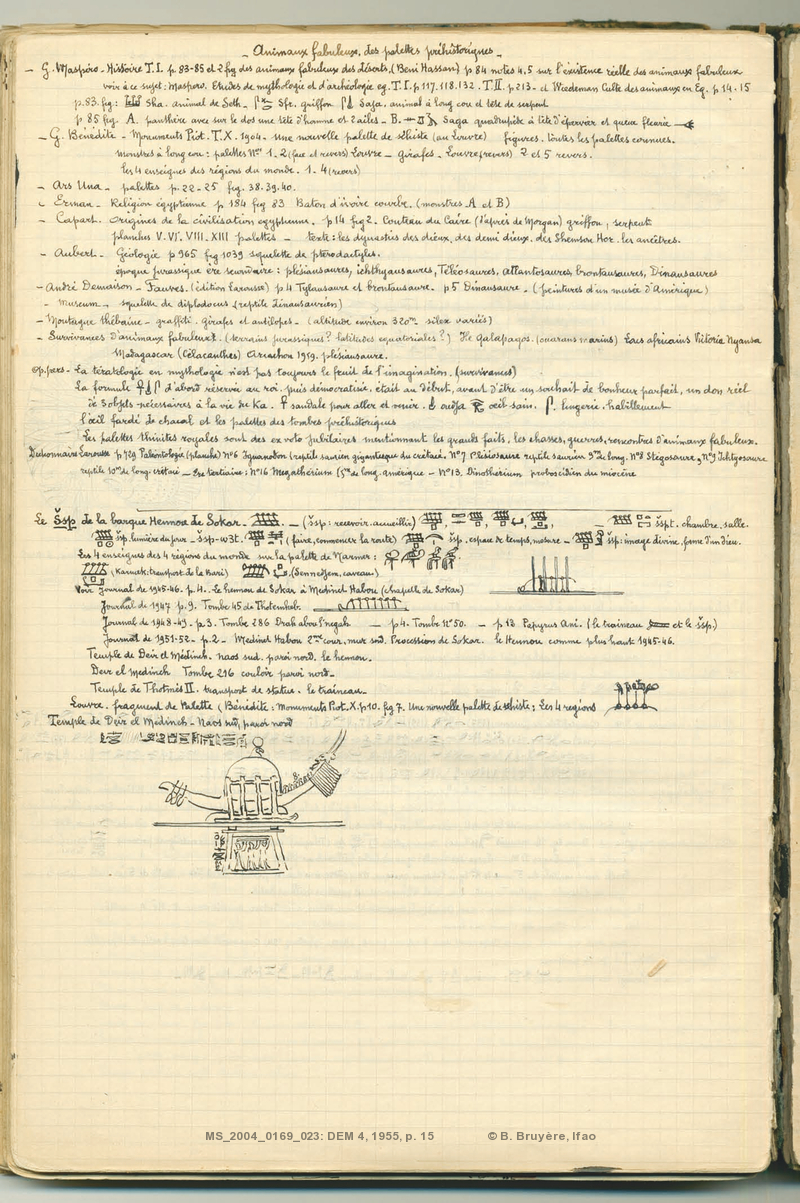 _ Animaux fabuleux, des palettes préhistoriques _
_ G. Maspero. Histoire T.I. p. 83-85 et 2 fig des animaux fabuleux des déserts, (Beni Hassan) p 84 notes 4.5 sur l'existence réelle des animaux fabuleux
voir à ce sujet: Maspero. Etudes de mythologie et d'archéologie eg. T.I. p. 117.118.132. T.II. p. 213 - et Wiedeman Culte des animaux en Eg. p. 14.15
p. 83. fig: Sha. animal de Seth _ Sfr. griffon Saja. animal à long cou et tête de serpent
p 85 fig. A. panthère avec sur le dos une tête d'homme et 2 ailes - B. Saga quadrupède à tête d'épervier et queue fleurie
_ G. Bénédite - Monuments Piot. T.X. 1904. Une nouvelle palette de schiste (au Louvre) figures. toutes les palettes connues.
monstres à long cou: palettes Nos 1. 2 (face et revers) Louvre _ Girafes. Louvre (revers) 2 et 5 revers.
les 4 enseignes des régions du monde. 1. 4 (revers)
_ Ars Una _ palettes p. 22-25 fig. 38.39.40.
_ Erman _ Religion égyptienne p 184 fig 83 Baton d'ivoire courbe. (monstres A et B)
_ Capart. Origines de la civilisation egyptienne. p 14 fig 2. Couteau du Caire (d'après de Morgan) griffon, serpent
planches V. VI. VIII. XIII palettes _ texte: les dynasties des dieux, des demi dieux. des Shemsou Hor. les ancêtres.
_ Aubert _ Géologie p 965 fig 1039 squelette de pterodactyles.
époque jurassique ère secondaire: plésiosaures, ichthyosaures, Téléosaures, atlantosaures, brontosaures, Dinosaures
_ André Demaison _ Fauves. (édition Larousse) p 4 Tylausaure et brontosaure. p 5 Dinosaure _ (peintures d'un musée d'Amérique)
_ Museum _ squelette de diplodocus (reptile dinausaurien)
_ Montagne thébaine _ graffiti. Girafes et antilopes _ (altitude environ 320m. silex variés)
_ Survivances d'animaux fabuleux. (terrains jurassiques? latitudes equatoriales?) Ile Galapagos. (ouarans marins) Lacs africains Victoria Nyansa
Madagascar (Célacanthes) Arcachon 1959. plésiosaure.
_ La tératologie en mythologie n'est pas toujours le fruit de l'imagination. (survivances)
La formule d'abord réservée au roi. puis démocratisée, était au début, avant d'être un souhait de bonheur parfait, un don réel
de 3 objets nécessaires à la vie du Ka. sandale pour aller et venir. oudja oeil sain. lingerie, habillement
l'oeil fardé de chacal et les palettes des tombes préhistoriques
Les palettes thinites royales sont des ex voto jubilaires mentionnant les grands faits, les chasses, guerres, rencontres d'animaux fabuleux.
Dictionnaire Larousse p 729 Paléontologie (planche) No 6 Iguanodon (reptile saurien gigantesque du crétacé. No 7 Plésiosaure reptile saurien 3m de long. No 8 Stégosaure, No 9 Ichtyosaure
reptile 10m de long. crétacé _ Ere tertiaire: No 16 Megathérium (5m de long. amérique - No 13. Dinothérium proboscidien du miocène
Le Šsp de la barque Hennou de Sokar. _ (šsp: recevoir. accueillir) _ šspt. chambre, salle.
šsp. lumière du jour _ šsp-w3t: (faire, commencer la route) šsp. espace de temps, mesure _ šsp: image divine, forme d'un dieu.
Les 4 enseignes des 4 régions du monde sur la palette de Narmer:
(Karnak: transport de la Bari) (Sennedjem, caveau)
Voir Journal de 1945-46. p. 4. Le hennou de Sokar à Medinet Habou (chapelle de Sokar)
Journal de 1947 p. 9. Tombe 45 de Thotemheb.
Journal de 1948-49. p. 3. Tombe 286 Drah aboul negah _ p 4. Tombe No 50. _ p 13 Papyrus Ani. (le traineau et le šsp.)
Journal de 1951-52. p. 2 _ Medinet Habou 2me cour, mur sud. Procession de Sokar. le Hennou comme plus haut 1945-46.
Temple de Deir el Médineh. naos sud. paroi nord. le hennou.
Deir el Medineh Tombe 216 couloir paroi nord _
Temple de Thotmès II. transport de statue. le traineau _
Louvre. fragment de Palette (Bénédite. Monuments Piot. X. p 10. fig 7. Une nouvelle palette de schiste: Les 4 regions
Temple de Deir el Medineh - Naos sud, paroi nord
MS_2004_0169_023: DEM 4, 1955, p. 15 © B. Bruyère, Ifao